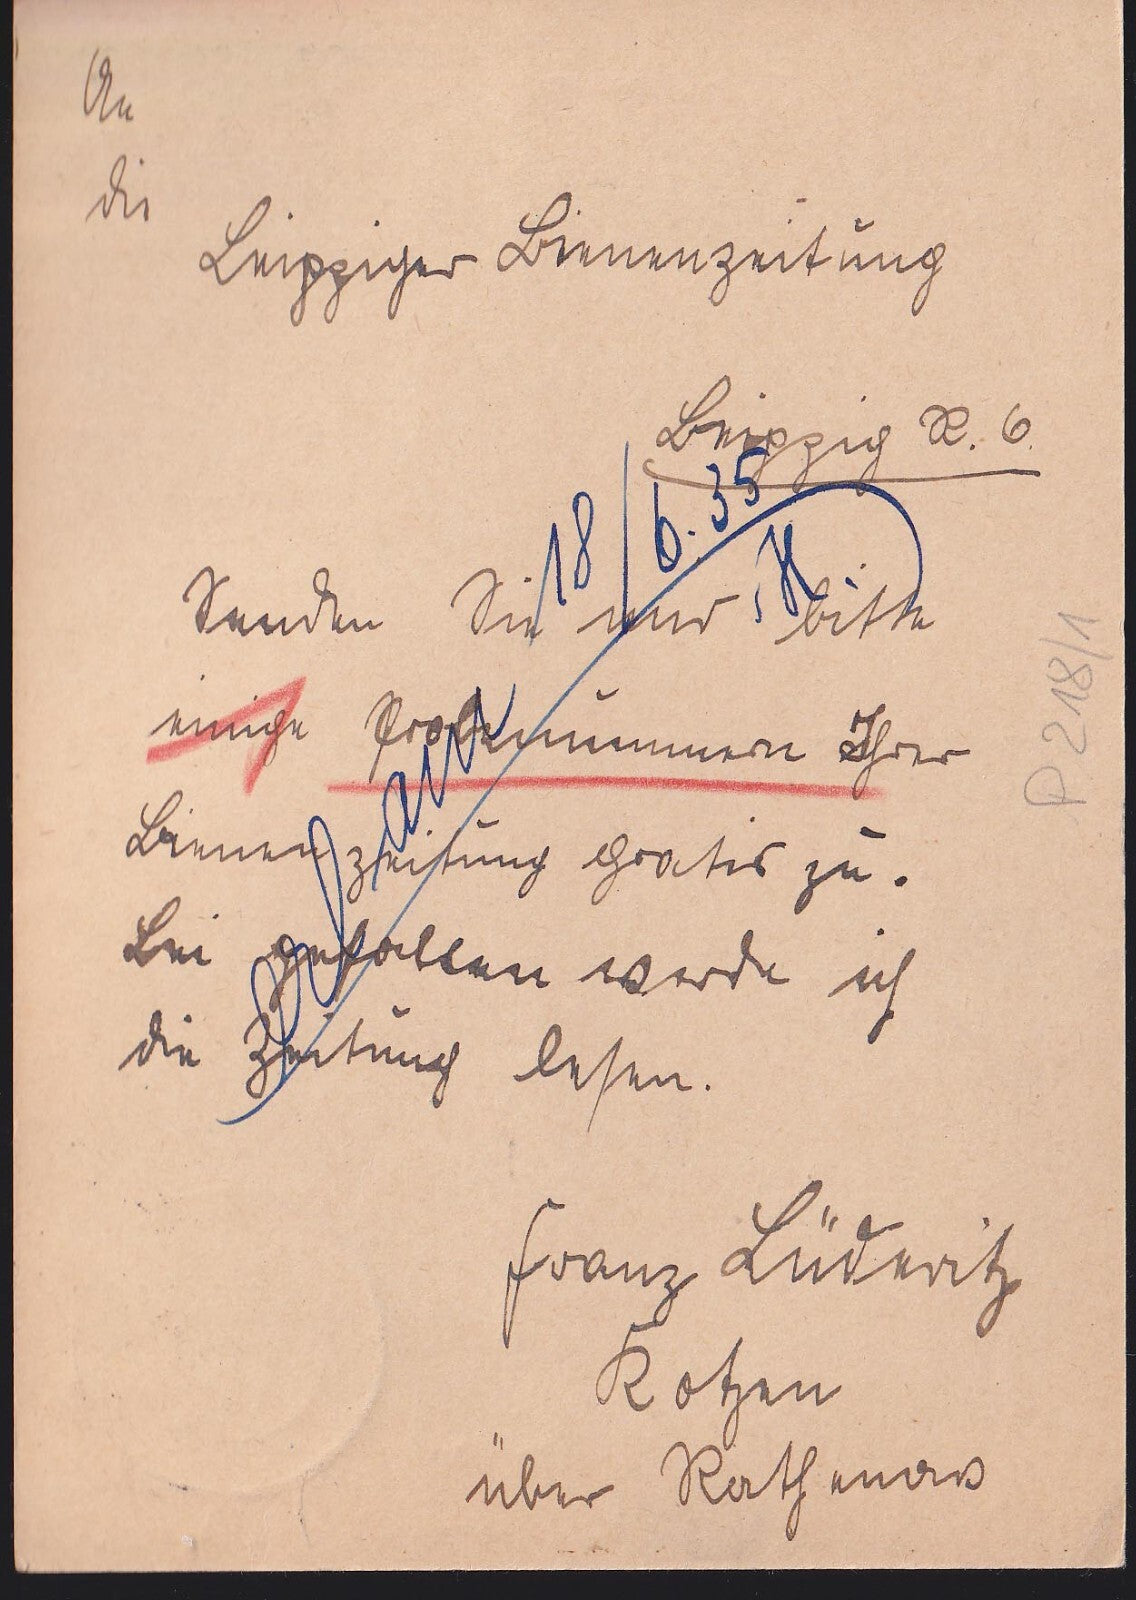 An
die
Leipziger Bienenzeitung
Leipzig R. 6.
18/6.35
Senden Sie mir bitte
einige Probenummern Ihrer
Bienenzeitung gratis zu.
Bei gefallen werde ich
die Zeitung lesen.
Franz Lüderitz
Kotzen
über Rathenow
P 218/1